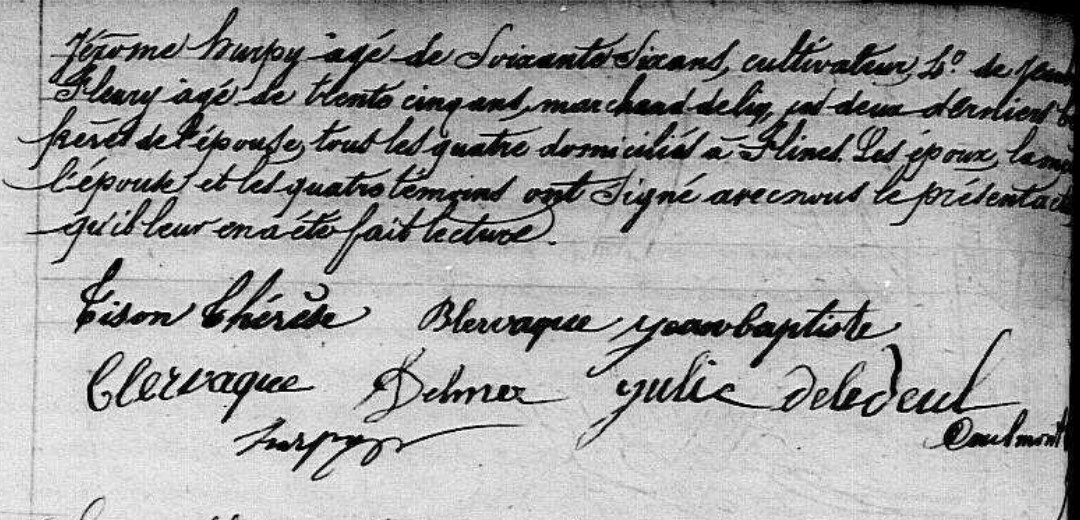 Jérôme hurpy âgé de Soixante Six ans, cultivateur, 4.° de
Fleury âgé de trente cinq ans, marchand de lin, ces deux derniers
frères de l'épouse, tous les quatre domiciliés à Flines. Les époux, la
l'épouse et les quatre témoins ont Signé avec nous le présent acte
qu'il leur en a été fait lecture.
Tison Thérèse Blervaque jean baptiste
Clervaque Delmer julie deledeul
hurpy